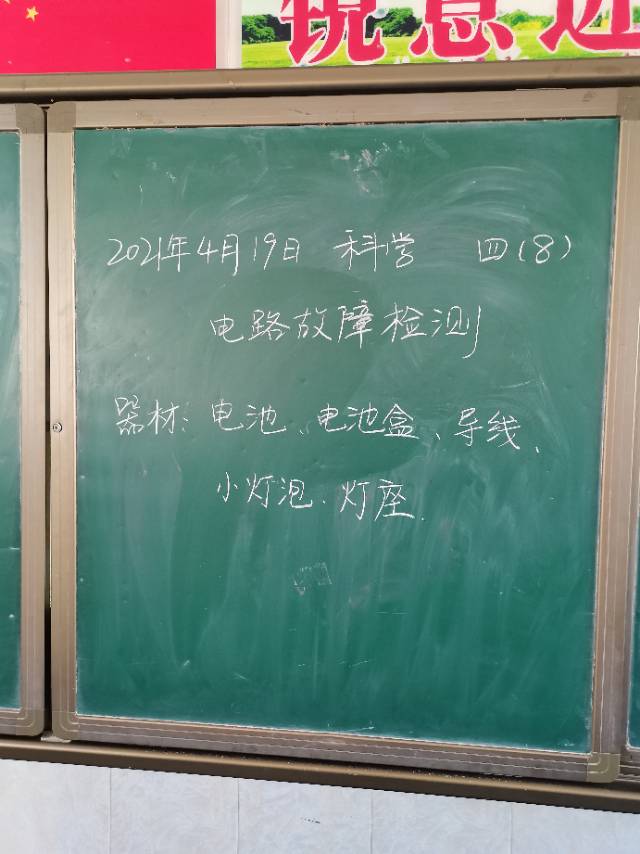 锐意进
2021年4月19日 科学 四(8)
电路故障检测
器材：电池、电池盒、导线、
小灯泡、灯座.